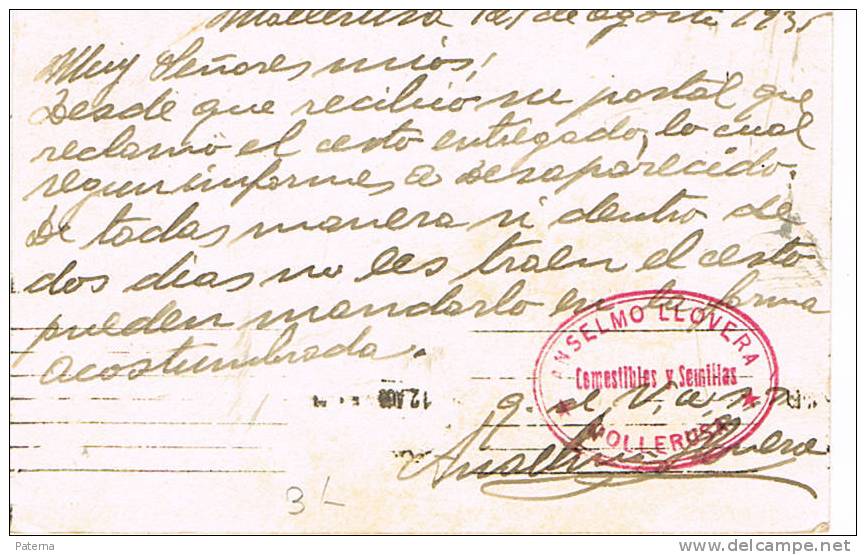 Mollerusa 12 de agosto 1935
Muy Señores mios;
Desde que recibio su postal que
reclamo el cesto entregado, lo cual
segun informes a Desaparecido.
De todas manera si dentro de
dos dias no les traen el cesto
pueden mandarlo en la forma
acostumbrada.
ANSELMO LLOVERA
Comestibles y Semillas
MOLLERUSA
q. e.
Anselmo Llovera
3 L
Paterna
www.delcampe.net